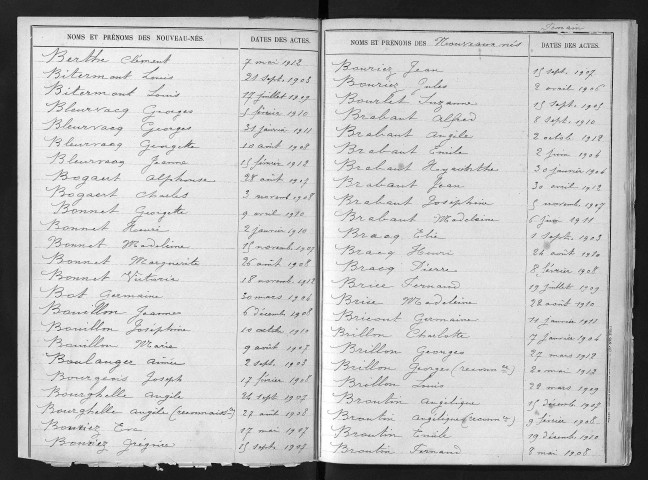 NOMS ET PRÉNOMS DES NOUVEAU-NÉS. DATES DES ACTES.
Berthe Clément 7 mai 1912
Bitermont Louis 21 sept. 1903
Bitermont Louis 27 juillet 1909
Bleurvacq Georges 5 février 1910
Bleurvacq Georges 31 janvier 1911
Bleurvacq Georgette 10 août 1908
Bleurvacq Jeanne 15 février 1912
Bogaert Alphonse 28 août 1907
Bogaert Charles 3 novemb. 1908
Bonnet Georgette 9 avril 1910
Bonnet Henri 2 janvier 1910
Bonnet Madeleine 25 novemb. 1907
Bonnet Marguerite 26 août 1908
Bonnet Victoria 18 novemb. 1912
Bot Germaine 30 mars 1906
Bouillon Jeanne 6 décemb. 1908
Bouillon Joséphine 10 octob. 1910
Bouillon Marie 9 août 1907
Boulanger Aimée 2 sept. 1903
Bourgeois Joseph 17 février 1908
Bourghelle Angèle 24 sept. 1907
Bourghelle Angèle 29 août 1908
Bouriez Eva 17 mai 1907
Bouriez Grégoire 15 sept. 1905
NOMS ET PRÉNOMS DES Nouveaux-nés DATES DES ACTES.
Bouriez Jean 15 sept. 1907
Bouriez Jules 2 avril 1906
Bourlet Suzanne 15 sept. 1905
Brabant Alfred 8 sept. 1910
Brabant Angèle 2 octob. 1912
Brabant Emile 2 juin 1906
Brabant Hyacinthe 30 janvier 1906
Brabant Jean 30 avril 1912
Brabant Joséphine 5 novemb. 1907
Brabant Madeleine 6 juin 1911
Bracq Elie 1 sept. 1903
Bracq Henri 24 août 1910
Bracq Pierre 8 février 1908
Brice Fernand 19 juillet 1909
Brice Madeleine 22 août 1910
Bricout Germaine 11 janvier 1911
Brillon Charlotte 7 janvier 1906
Brillon Georges 27 mars 1912
Brillon Georges 20 mai 1912
Brillon Louis 22 mars 1909
Broutin Angélique 15 décemb. 1907
Broutin Angélique 9 février 1908
Broutin Emile 19 décemb. 1910
Broutin Fernand 2 mai 1908